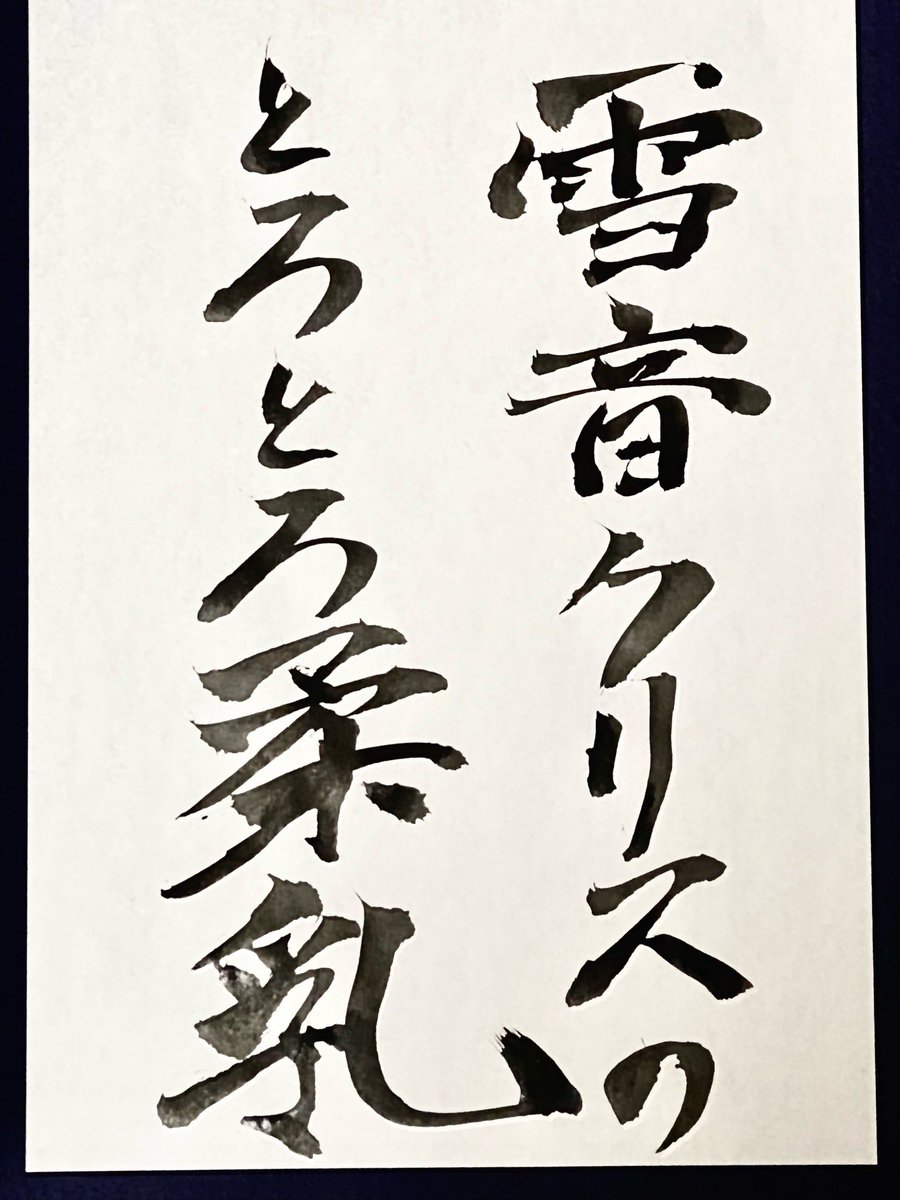 雪音クリスの
とろとろ柔乳